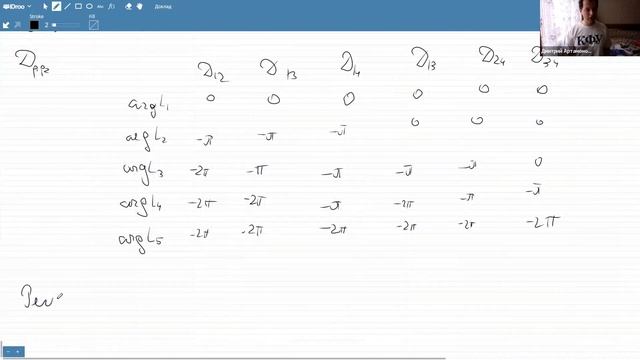 iDroo
Доклад
Stroke
2
Fill
КФУ
Дмитрий Артамоно...
D₁₂ D₁₃ D₁₄ D₁₃ D₂₄ D₃₄
arg L₁ 0 0 0 0 0 0
arg L₂ -π -π -π 0 0 0
arg L₃ -2π -π -π -π -π 0
arg L₄ -2π -2π -π -2π -π -π
arg L₅ -2π -2π -2π -2π -2π -2π